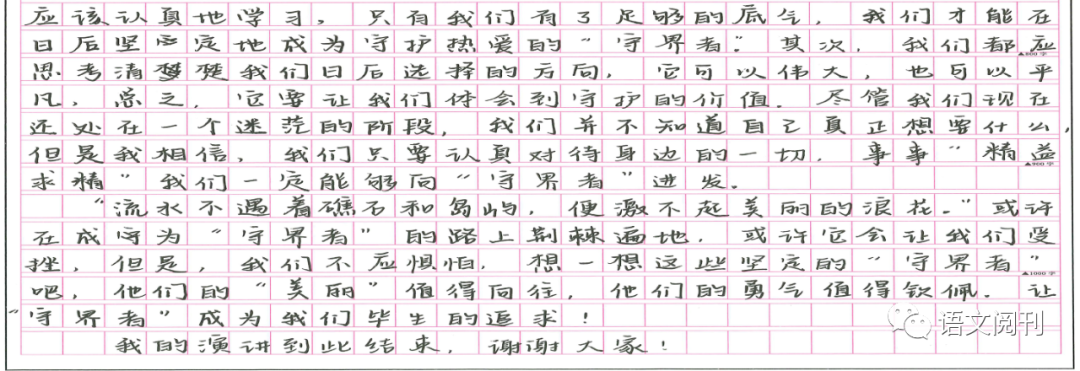 应该认真地学习，只有我们有了足够的底气，我们才能在
日后坚定地成为守护热爱的“守界者”。其次，我们都应
▲800字
思考清楚我们日后选择的方向，它可以伟大，也可以平
凡，总之，它要让我们体会到守护的价值。尽管我们现在
还处在一个迷茫的阶段，我们并不知道自己真正想要什么，
但是我相信，我们只要认真对待身边的一切，事事“精益
▲900字
求精”我们一定能够向“守界者”进发。
“流水不遇着礁石和岛屿，便激不起美丽的浪花。”或许
在成守为“守界者”的路上荆棘遍地，或许它会让我们受
挫，但是，我们不应惧怕，想一想这些坚定的“守界者”
▲1000字
吧，他们的“美丽”值得向往，他们的勇气值得钦佩。让
“守界者”成为我们毕生的追求！
我的演讲到此结束，谢谢大家！
语文阅刊